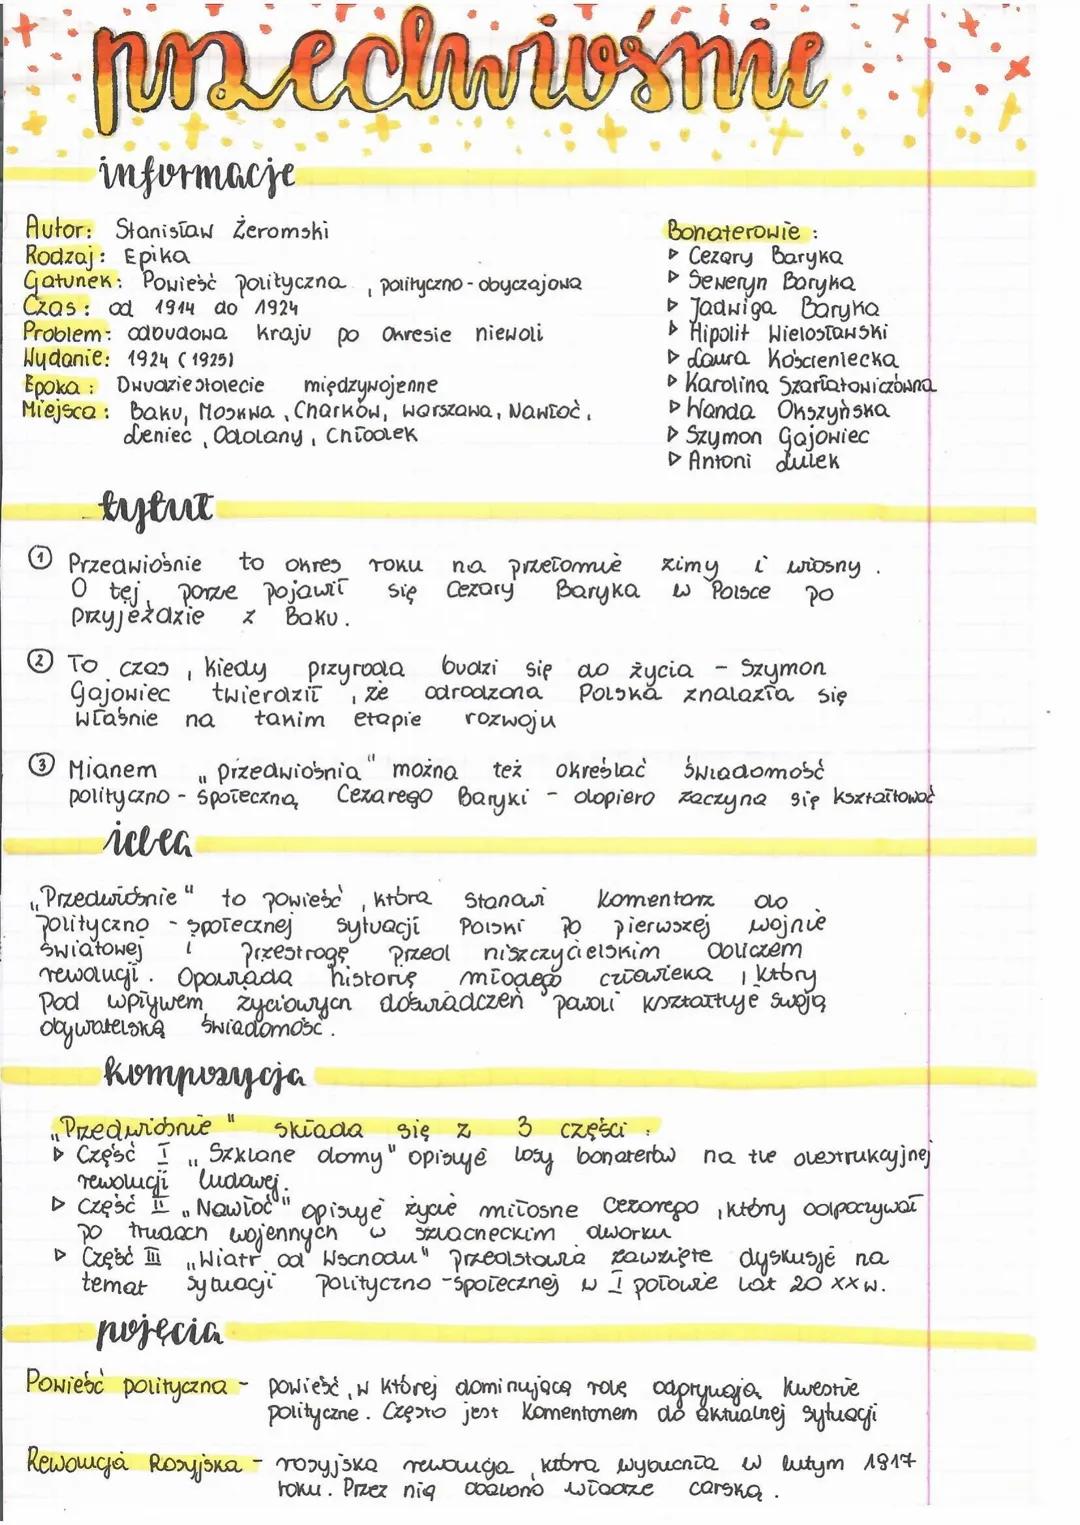 przedwiośnie
informacje
Autor: Stanisław Żeromski
Rodzaj: Epika
Gatunek: Powieść polityczna, polityczno-obyczajowa
Czas: od 1914 do 1924
Problem: odbudowa kraju po okresie niewoli
Wydanie: 1924 (1925)
Epoka: Dwudziestolecie międzywojenne
Miejsca: Baku, Moskwa, Charków, Warszawa, Nawłoć,
Leniec, Odolany, Chłodek
Bohaterowie:
▷ Cezary Baryka
▷ Seweryn Baryka
▷ Jadwiga Baryka
▷ Hipolit Wielosławski
▷ Laura Kościeniecka
▷ Karolina Szarłatowiczówna
▷ Wanda Okszyńska
▷ Szymon Gajowiec
▷ Antoni Lulek
tytuł
① Przedwiośnie to okres roku na przełomie zimy i wiosny.
O tej porze pojawił się Cezary Baryka w Polsce po
przyjeździe z Baku.
② To czas, kiedy przyroda budzi się do życia - Szymon
Gajowiec twierdził, że odrodzona Polska znalazła się
właśnie na takim etapie rozwoju
③ Mianem „przedwiośnia" można też określać świadomość
polityczno-społeczną Cezarego Baryki - dopiero zaczyna się kształtować
idea
„Przedwiośnie" to powieść, która stanowi komentarz do
polityczno-społecznej sytuacji Polski po pierwszej wojnie
światowej i przestrogę przed niszczycielskim obliczem
rewolucji. Opowiada historię młodego człowieka, który
pod wpływem życiowych doświadczeń powoli kształtuje swoją
obywatelską świadomość.
kompozycja
„Przedwiośnie" składa się z 3 części:
▷ Część I „Szklane domy" opisuje losy bohaterów na tle destrukcyjnej
rewolucji ludowej.
▷ Część II „Nawłoć" opisuje życie miłosne Cezarego, który odpoczywał
po trudach wojennych w szlacheckim dworku.
▷ Część III „Wiatr od Wschodu" przedstawia zawzięte dyskusje na
temat sytuacji polityczno-społecznej w I połowie lat 20 XX w.
pojęcia
Powieść polityczna - powieść, w której dominującą rolę odgrywają kwestie
polityczne. Często jest komentarzem do aktualnej sytuacji
Rewolucja Rosyjska - rosyjska rewolucja, która wybuchła w lutym 1917
roku. Przez nią obalono władzę carską.